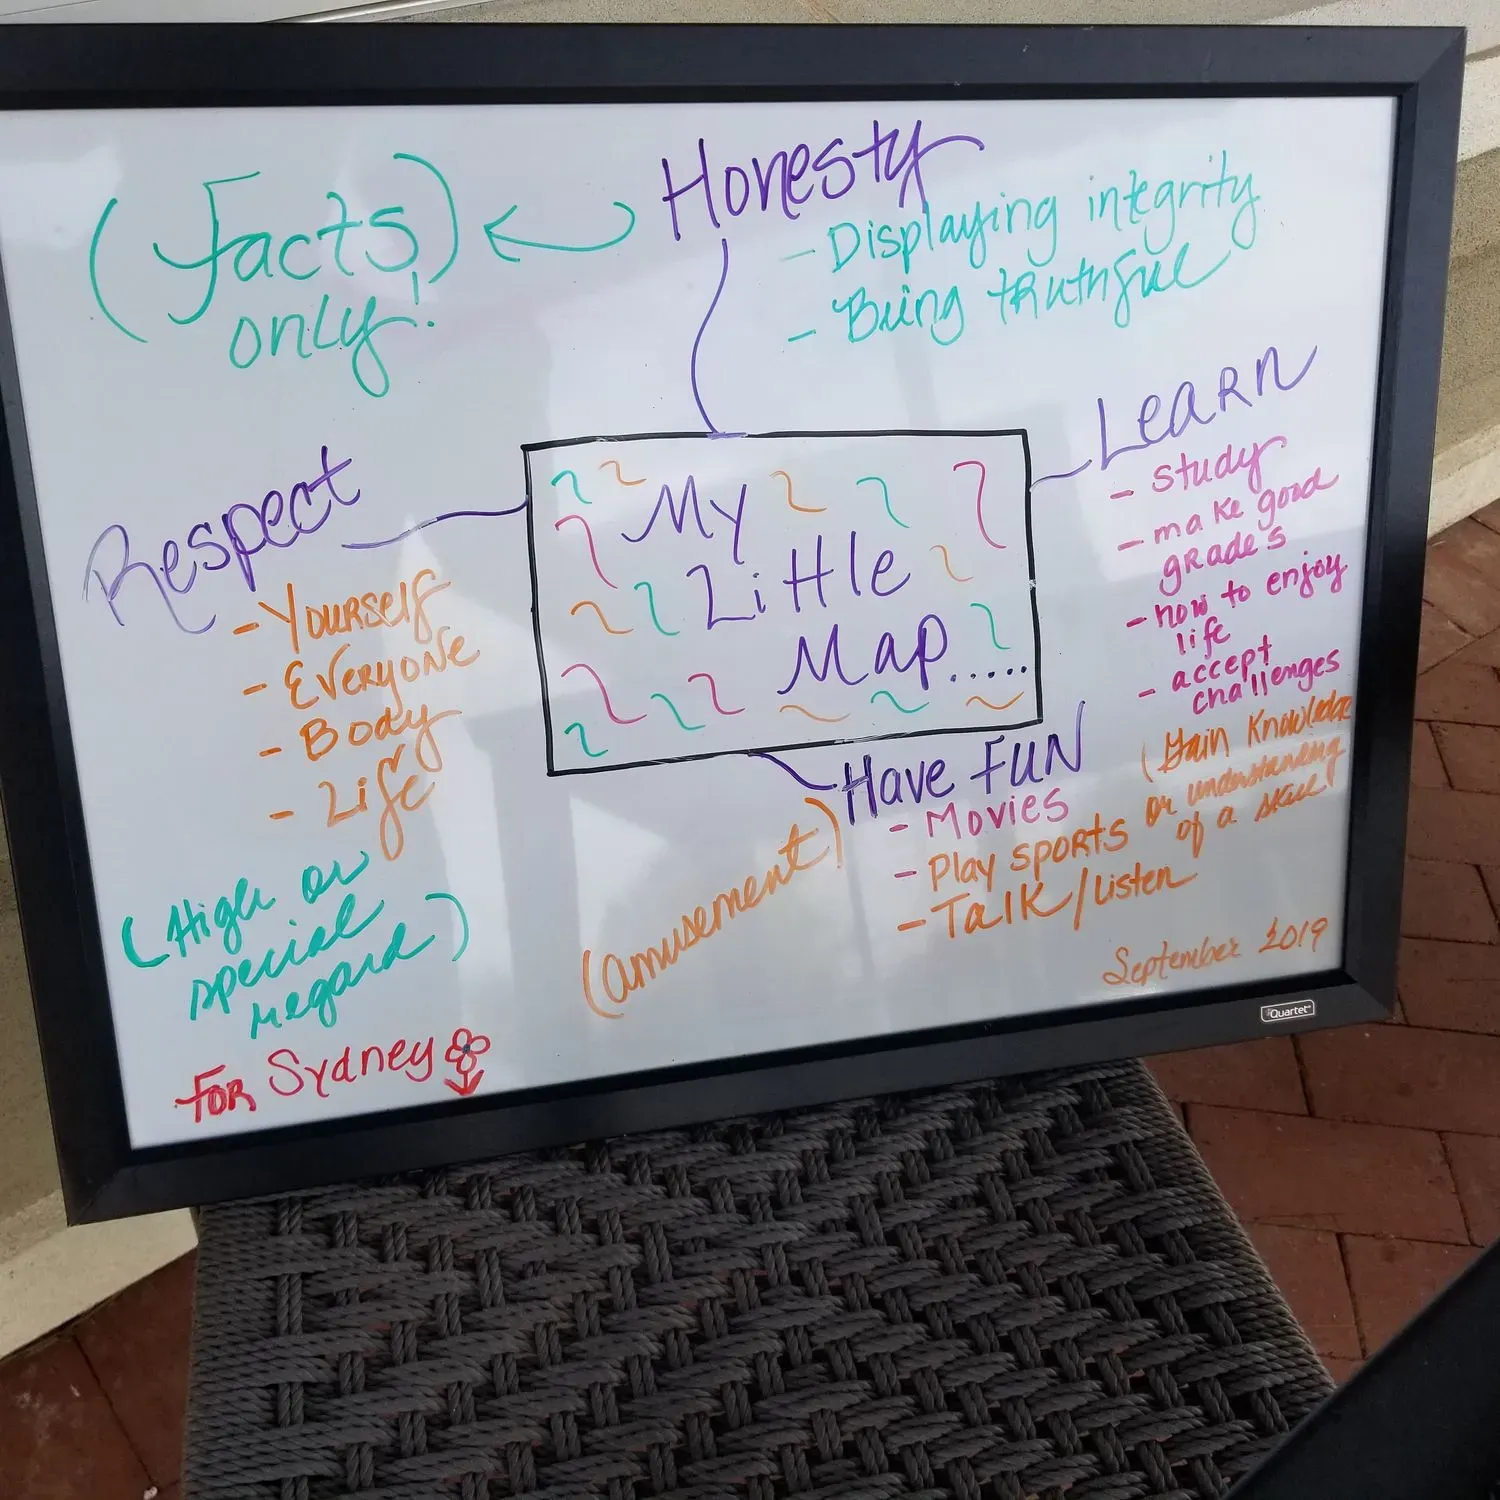 (Facts
only!)
Honesty
- Displaying integrity
- Being truthful
Respect
- Yourself
- Everyone
- Body
- Life
(High or
special
regard)
My
Little
Map.....
Learn
- study
- make good
grade's
- how to enjoy
life
- accept
challenges
(Gain Knowledge
or understanding
of a skill
Have FUN
- Movies
- Play sports
- Talk/Listen
(amusement)
September 2019
For Sydney
Quartet